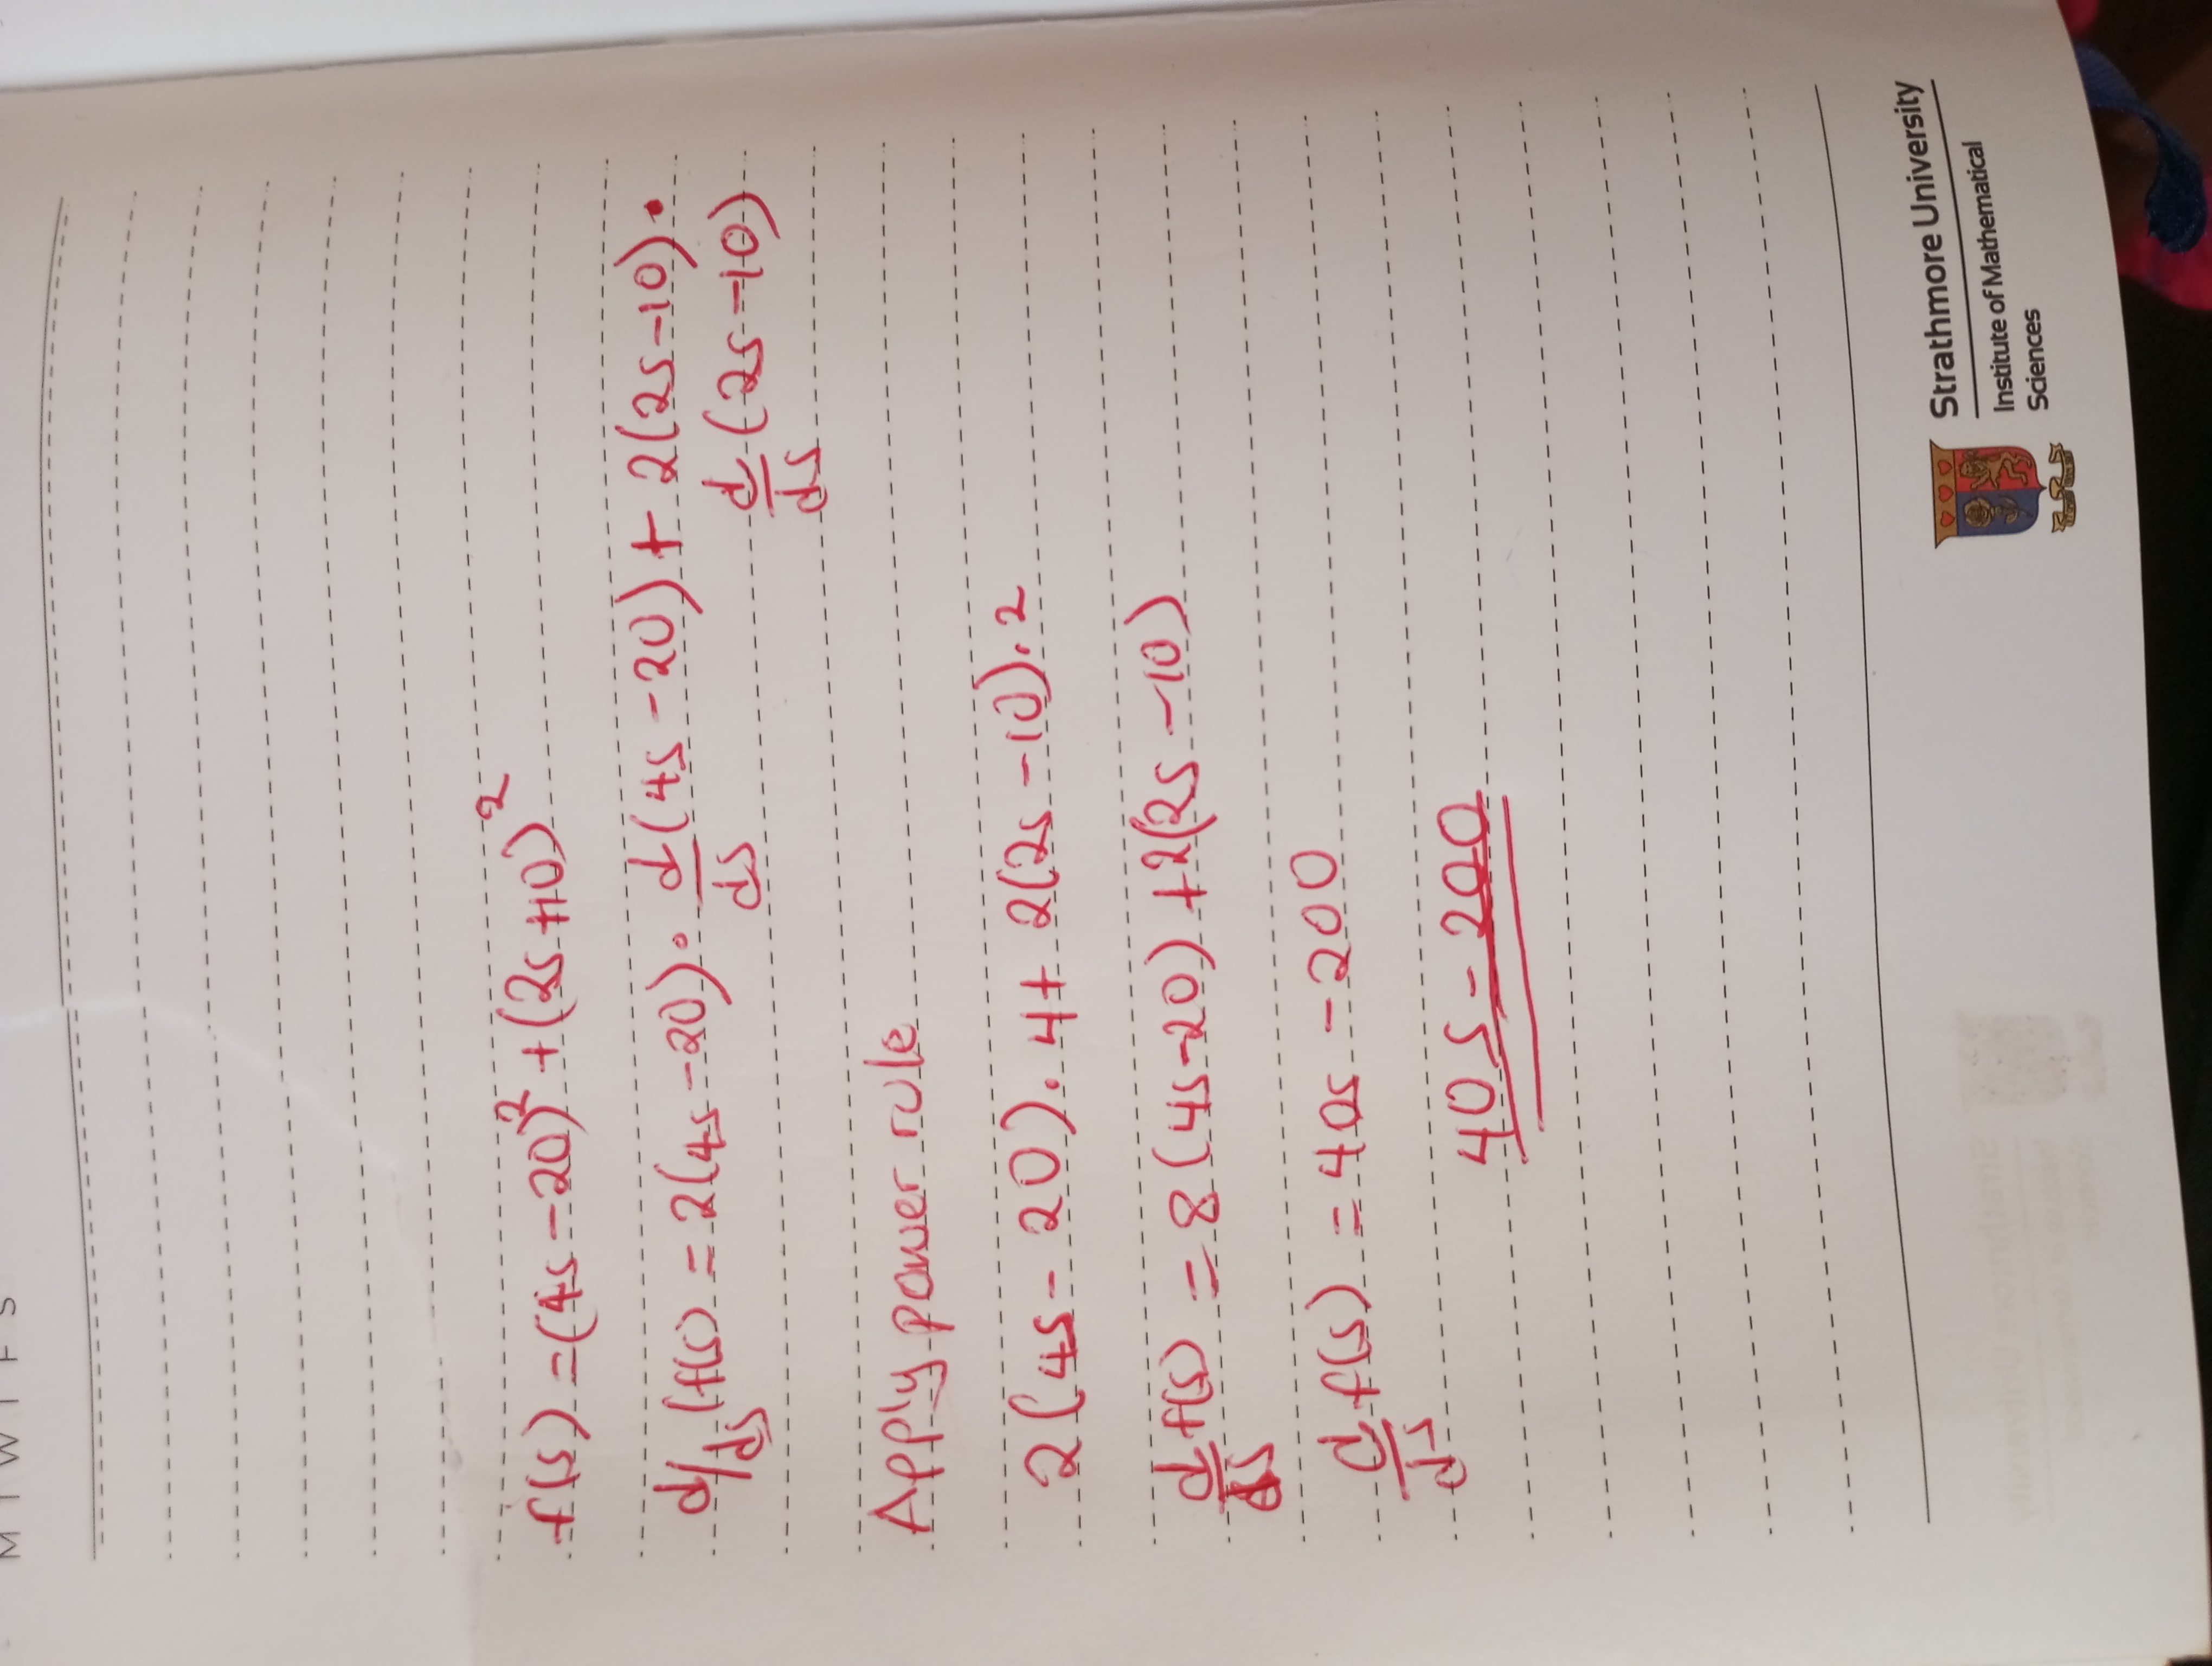 M T W T F S
f(s) = (4s - 20)² + (2s + 10)²
d/ds (f(s) = 2(4s - 20). d/ds (4s - 20) + 2(2s - 10).
d/ds (2s - 10)
Apply power rule
2(4s - 20). 4 + 2(2s - 10). 2
d/ds f(s) = 8(4s - 20) + 2(2s - 10)
d/ds f(s) = 40s - 200
40s - 200
Strathmore University
Institute of Mathematical
Sciences